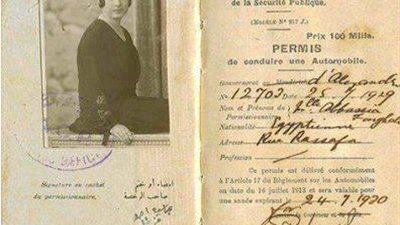 de la Sécurité Publique.
(MODÈLE Nº 217 J.)
Prix 100 Mills.
PERMIS
de conduire une Automobile.
Gouvernorat d'Alexandrie
Nº 12703 Date 25 7 1929
Nom et Prénoms du Mlle Abassia
Permissionnaire.
Nationalité Egyptienne
Adresse Rue Rassafa
Profession
Ce permis est délivré conformément
à l'Article 17 du Règlement sur les Automobiles
en date du 16 juillet 1913 et sera valable pour
une année expirant le 24-7-1930
OFFICE
امضاء أو ختم
صاحب الرخصة
Signature ou cachet
du permissionnaire.